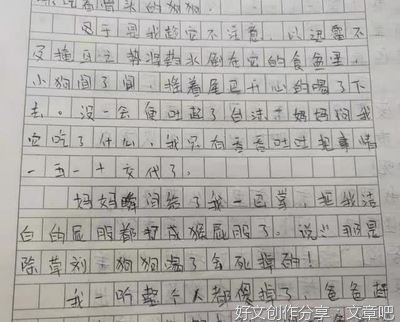 吃着骨头的狗狗。
于是我趁它不注意，以迅雷不
及掩耳之势将药水倒在它的食盆里，
小狗闻了闻，摇着尾巴开心的喝了下
去。没一会它吐起了白沫，妈妈问我
它吃了什么，我只有吞吞吐吐把事情
一五一十交代了。
妈妈瞬间给了我一巴掌，把我洁
白的屁股都打成猴屁股了。说：那是
除草剂，狗狗喝了会死掉的！
我一听整个人都傻掉了，爸爸赶
好文创作分享-文章吧